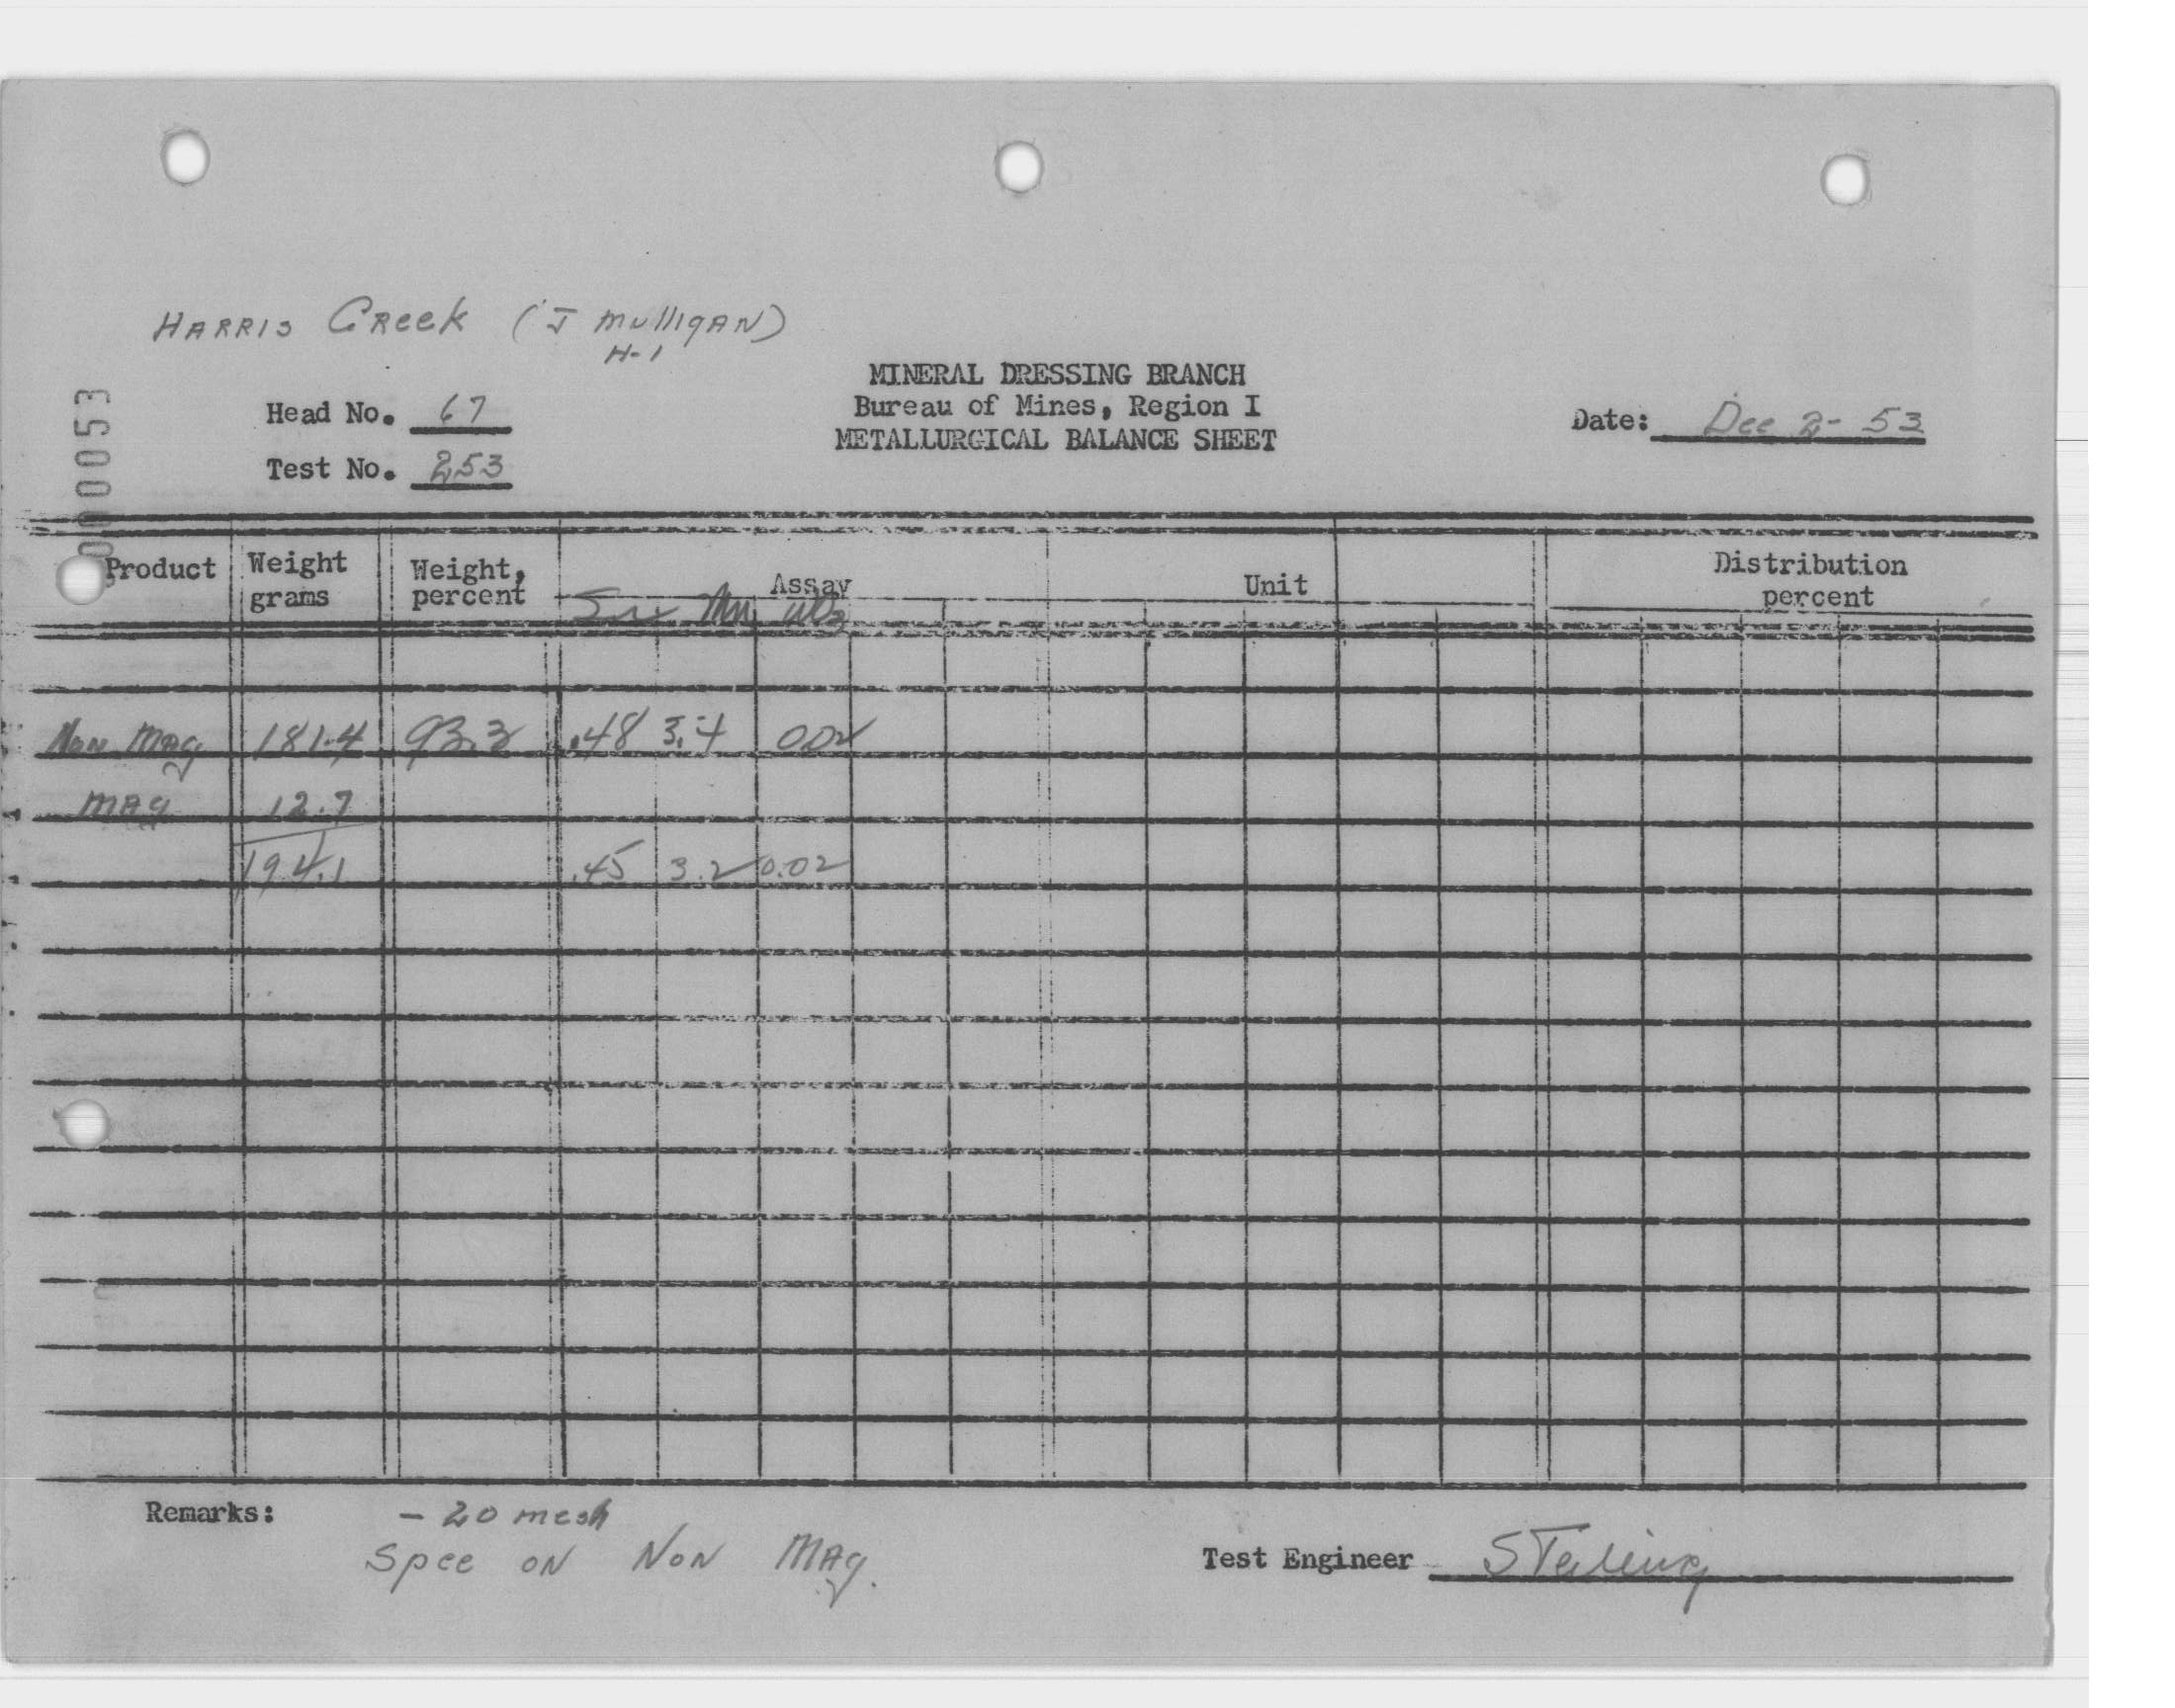 HARRIS CReek (J mulligAN)
H-1
MINERAL DRESSING BRANCH
Bureau of Mines, Region I
METALLURGICAL BALANCE SHEET
Head No. 67
Test No. 253
Date: Dec 2- 53
000053
Product Weight grams Weight, percent Assay Unit Distribution percent
Sn Mn WO3
NoN MAg 181.4 93.3 .48 3.4 0.02
MAg 12.7
194.1 .45 3.2 0.02
Remarks: - 20 mesh
Spec ON NoN MAg.
Test Engineer STerling